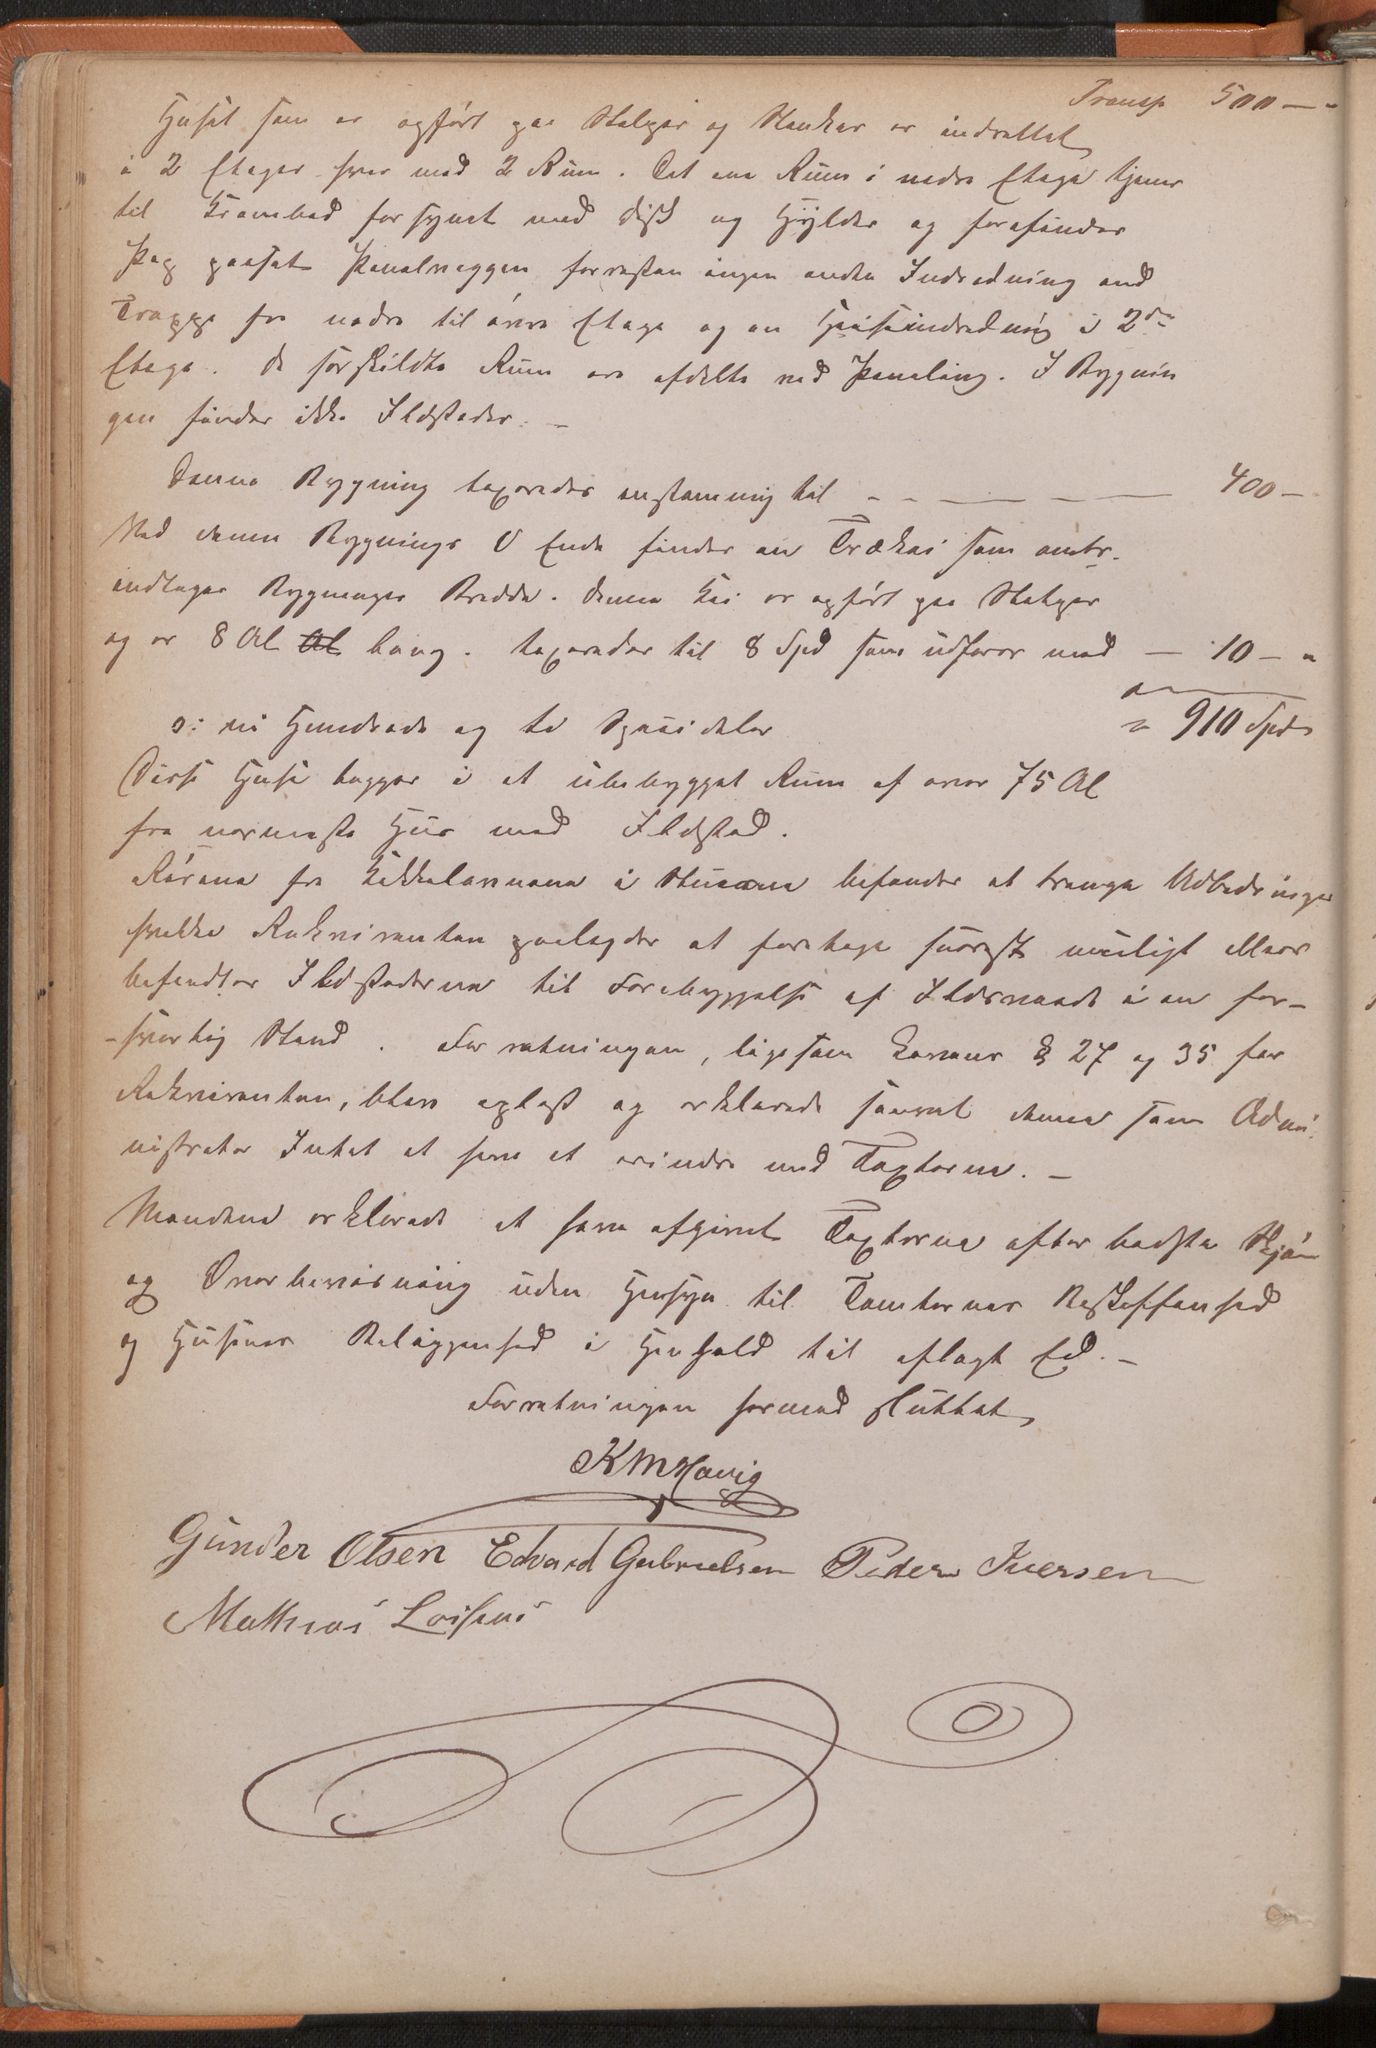 Transp 500 — "
Huset som er opført paa Stolper og Stænker er indrettet
i 2 Etager hver med 2 Rum. Det ene Rum i nedre Etage tjener
til Krambod forsynet med Disk og Hylder og forefindes
paasat Panelvæggen forresten ingen anden Indredning end
Trappe fra nedre til øvre Etage og en Heiseindredning i 2den
Etage. De særskildte Rum ere afdelte ved Paneling. I Bygnin
gen findes ikke Ildsteder. —
Denne Bygning taxeredes enstemmig til — — — 400 —
Ved denne Bygnings V Ende findes en Trækai som omtr.
indtager Bygningens Bredde. Denne Kai er opført paa Stolper
og er 8 Al Al lang. taxeredes til 8 Spd som udføres med — 10 — "
o: ni Hundrede og ti Speciedaler " 910 Spd
Disse Huse ligger i et ubebygget Rum af over 75 Al
fra nærmeste Huus med Ildsted.
Rørene fra Kakkelovnene i Stuerne befandtes at trænge Udbedringer
hvilke Rekvirenten paalagdes at foretage snarest muligt ellers
befandtes Ildstederne til Forebyggelse af Ildsvaade i en for-
-svarlig Stand. Forretningen, ligesom Lovens § 27 og 35 for
Rekvirenten, blev oplæst og erklærede saavel denne som Admi-
nistrator Intet at have at erindre mod Taxterne. —
Mændene erklærede at have afgivet Taxterne efter bedste Skjøn
og Overbeviisning uden Hensyn til Tomternes Beskaffenhed
og Husenes Beliggenhed i Henhold til aflagt Ed. —
Forretningen hermed sluttet
KM Havig
Gunder Olsen Edvard Gabrielsen Peder Iversen
Mathias